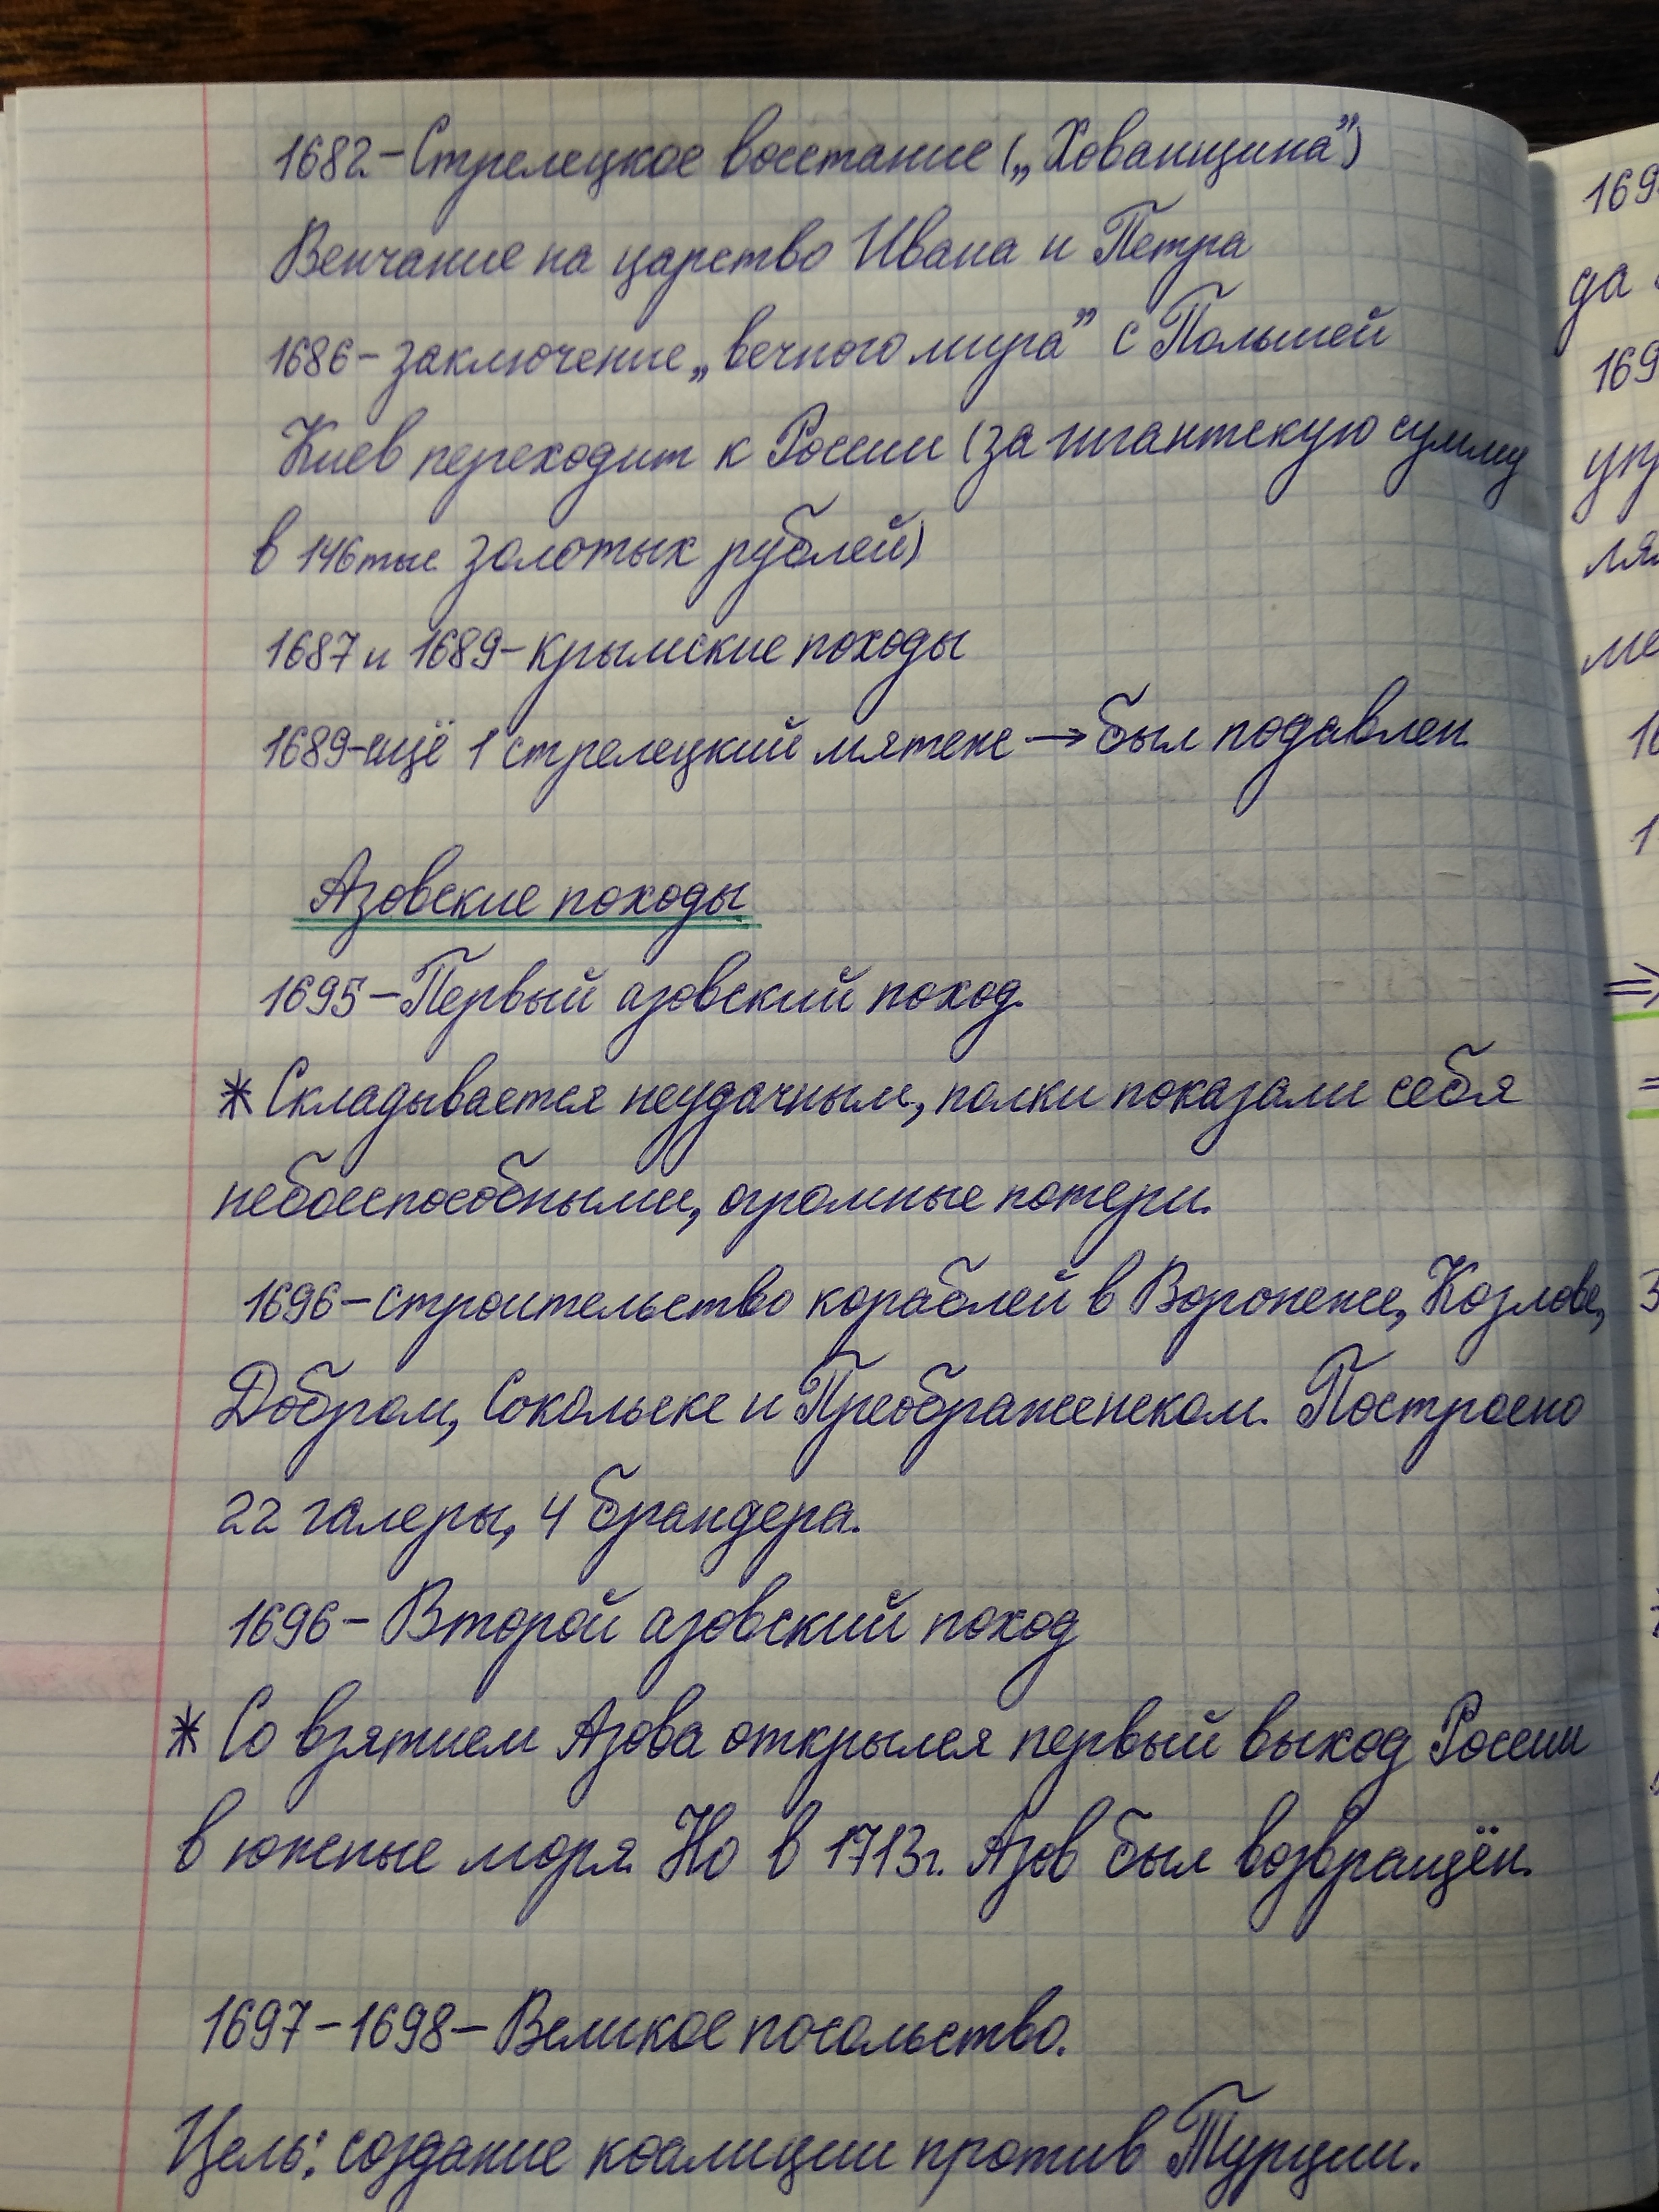 1682 – Стрелецкое восстание („Хованщина”)
Венчание на царство Ивана и Петра
1686 – заключение „вечного мира” с Польшей
Киев переходит к России (за гигантскую сумму
в 146 тыс. золотых рублей)
1687 и 1689 – крымские походы
1689 – ещё 1 стрелецкий мятеж → был подавлен
Азовские походы
1695 – Первый азовский поход.
* Складывается неудачным, полки показали себя
небоеспособными, огромные потери.
1696 – строительство кораблей в Воронеже, Козлове,
Добром, Сокольске и Преображенском. Построено
22 галеры, 4 брандера.
1696 – Второй азовский поход
* Со взятием Азова открылся первый выход России
в южные моря. Но в 1713г. Азов был возвращён.
1697 – 1698 – Великое посольство.
Цель: создание коалиции против Турции.
169
да
169